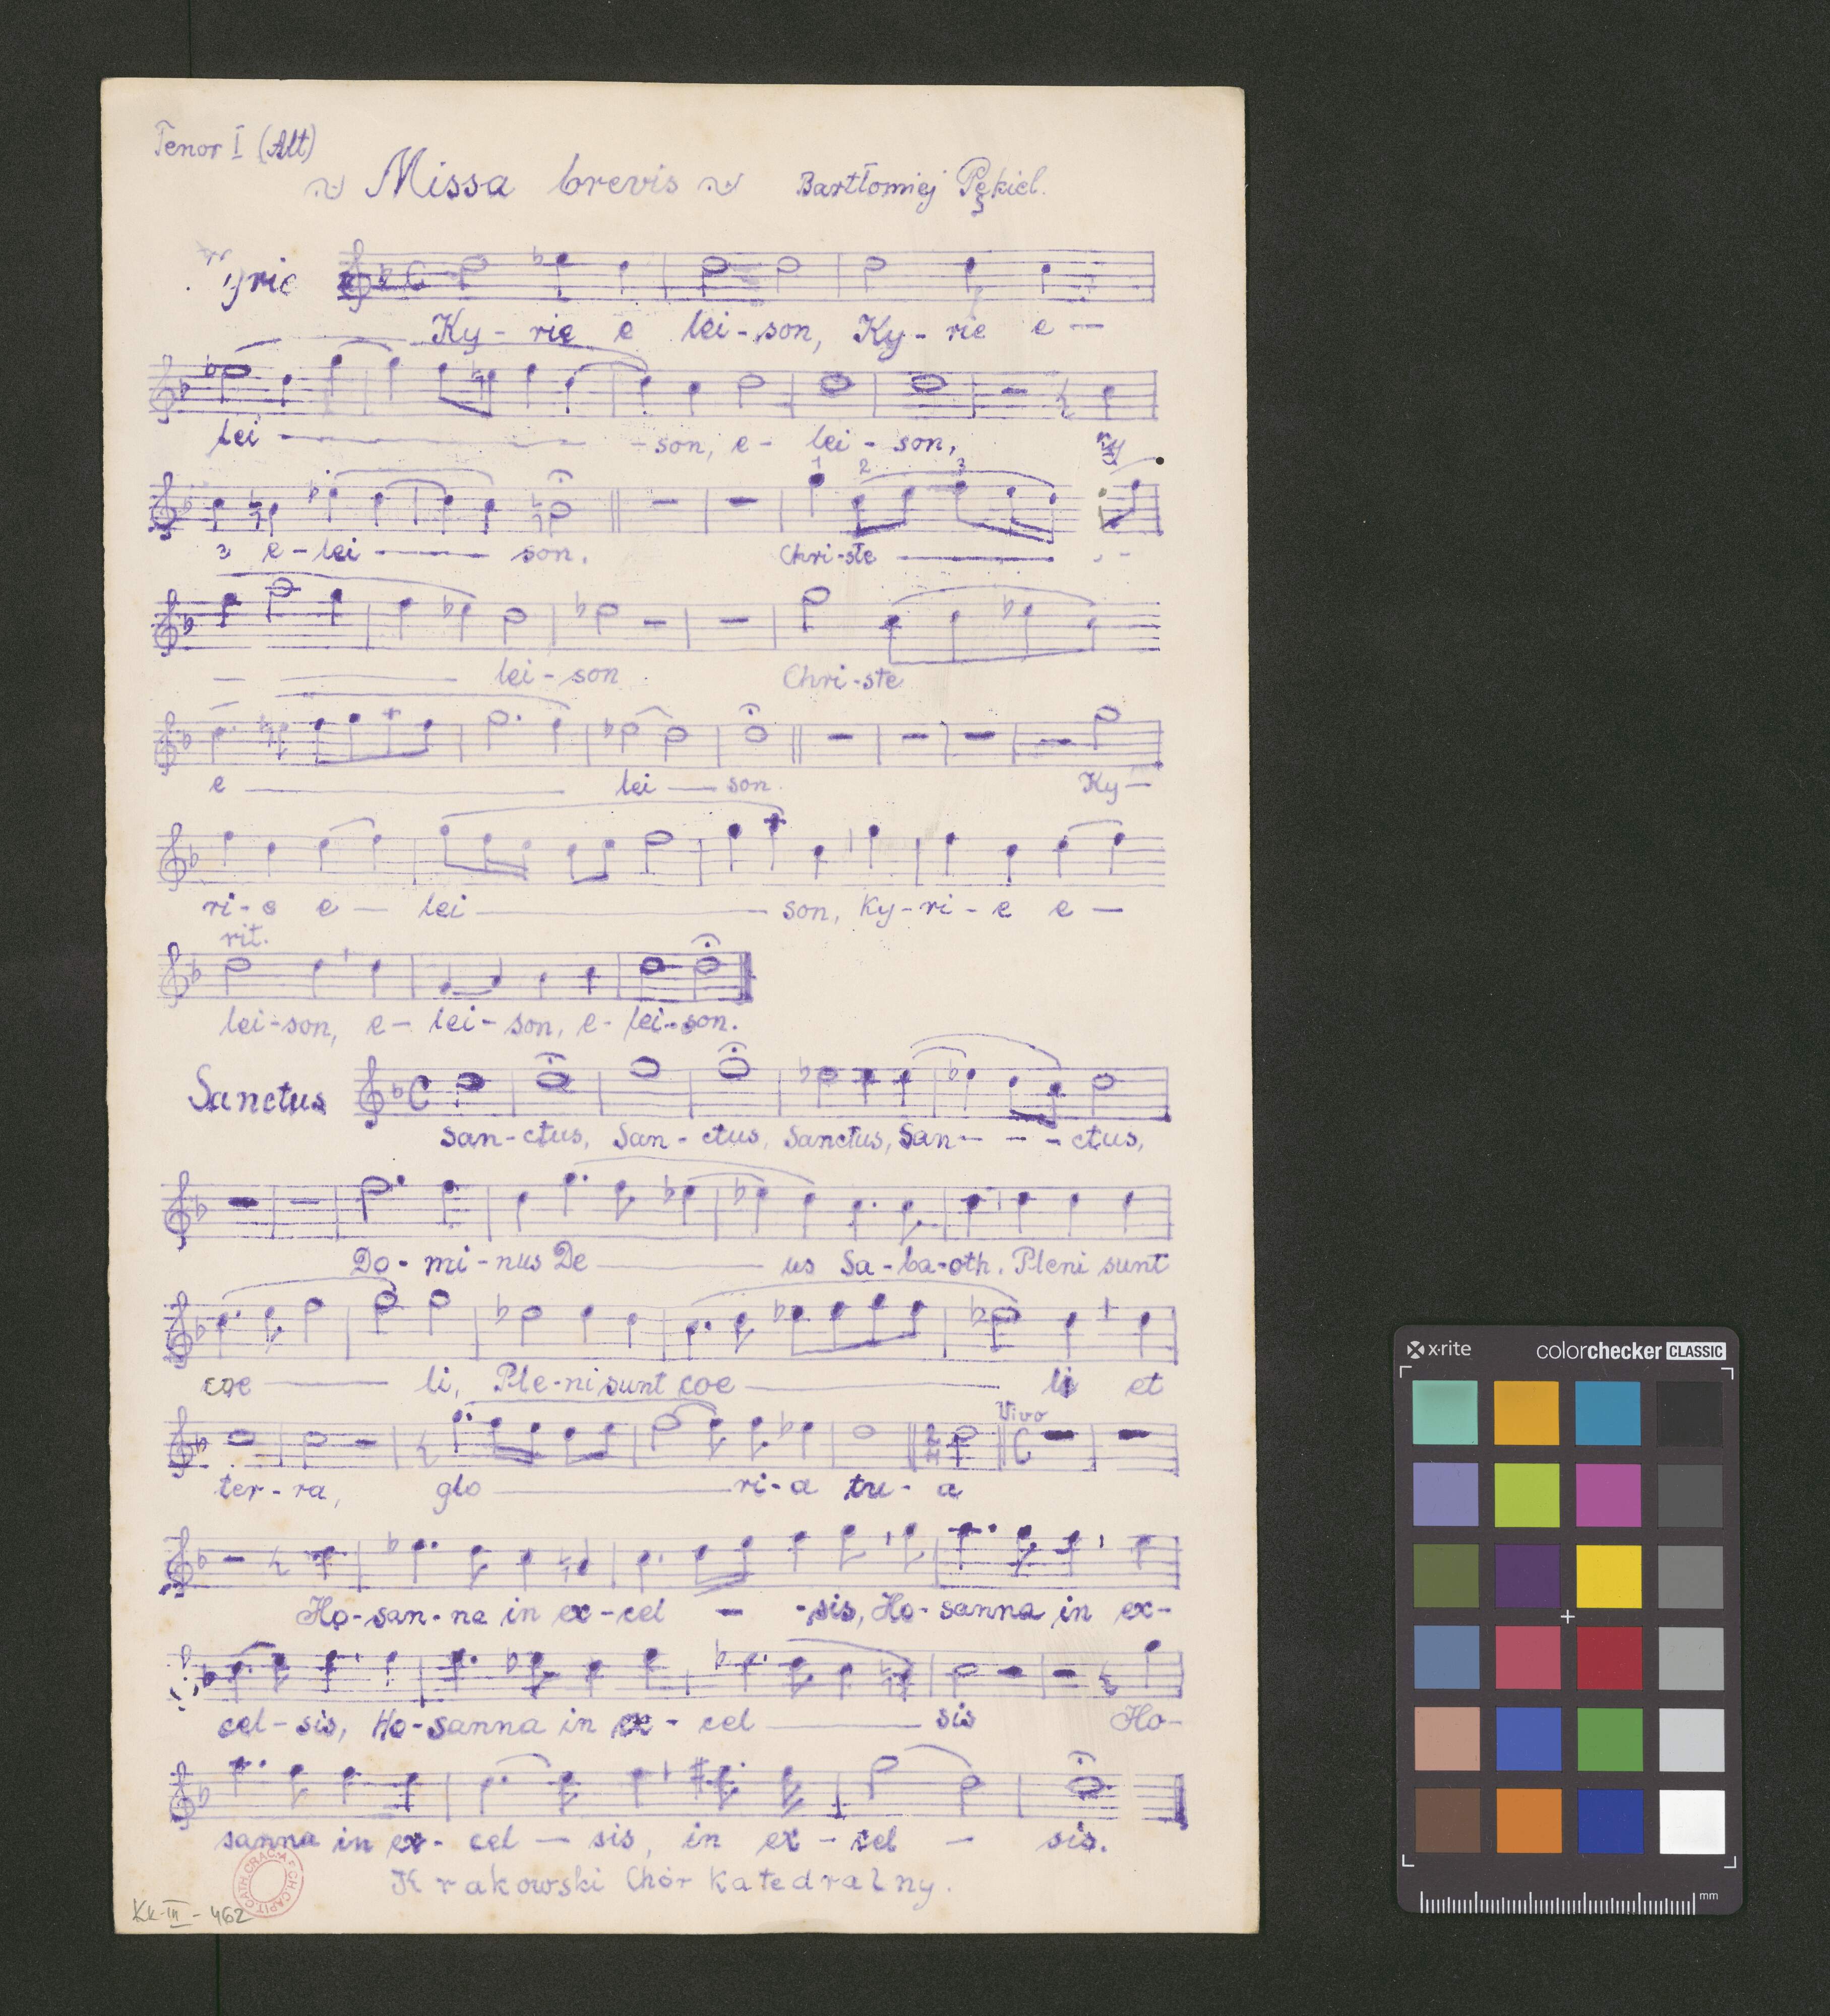 Tenor I (Alt)
Missa brevis Bartłomiej Pękiel.
Ky - rie e lei - son, Ky - rie e —
lei — - son, e - lei - son,
1 2 3
e - lei — son. Chri - ste —
— lei - son Chri - ste
e — lei — son Ky —
ri - e e — lei — son, Ky - ri - e e —
rit.
lei - son, e - lei - son, e - lei - son.
Sanctus
San - ctus, San - ctus, Sanctus, San - - - ctus,
Do - mi - nus De — us Sa - ba - oth. Pleni sunt
coe — li, Ple - ni sunt coe — li et
Vivo
ter - ra, glo — ri - a tu - a
Ho - san - na in ex - cel — - sis, Ho - sanna in ex -
cel - sis, Ho - sanna in ex - cel — sis Ho -
sanna in ex - cel — sis, in ex - cel — sis.
Krakowski Chór Katedralny.
Kk-III-462
x-rite colorchecker CLASSIC
mm